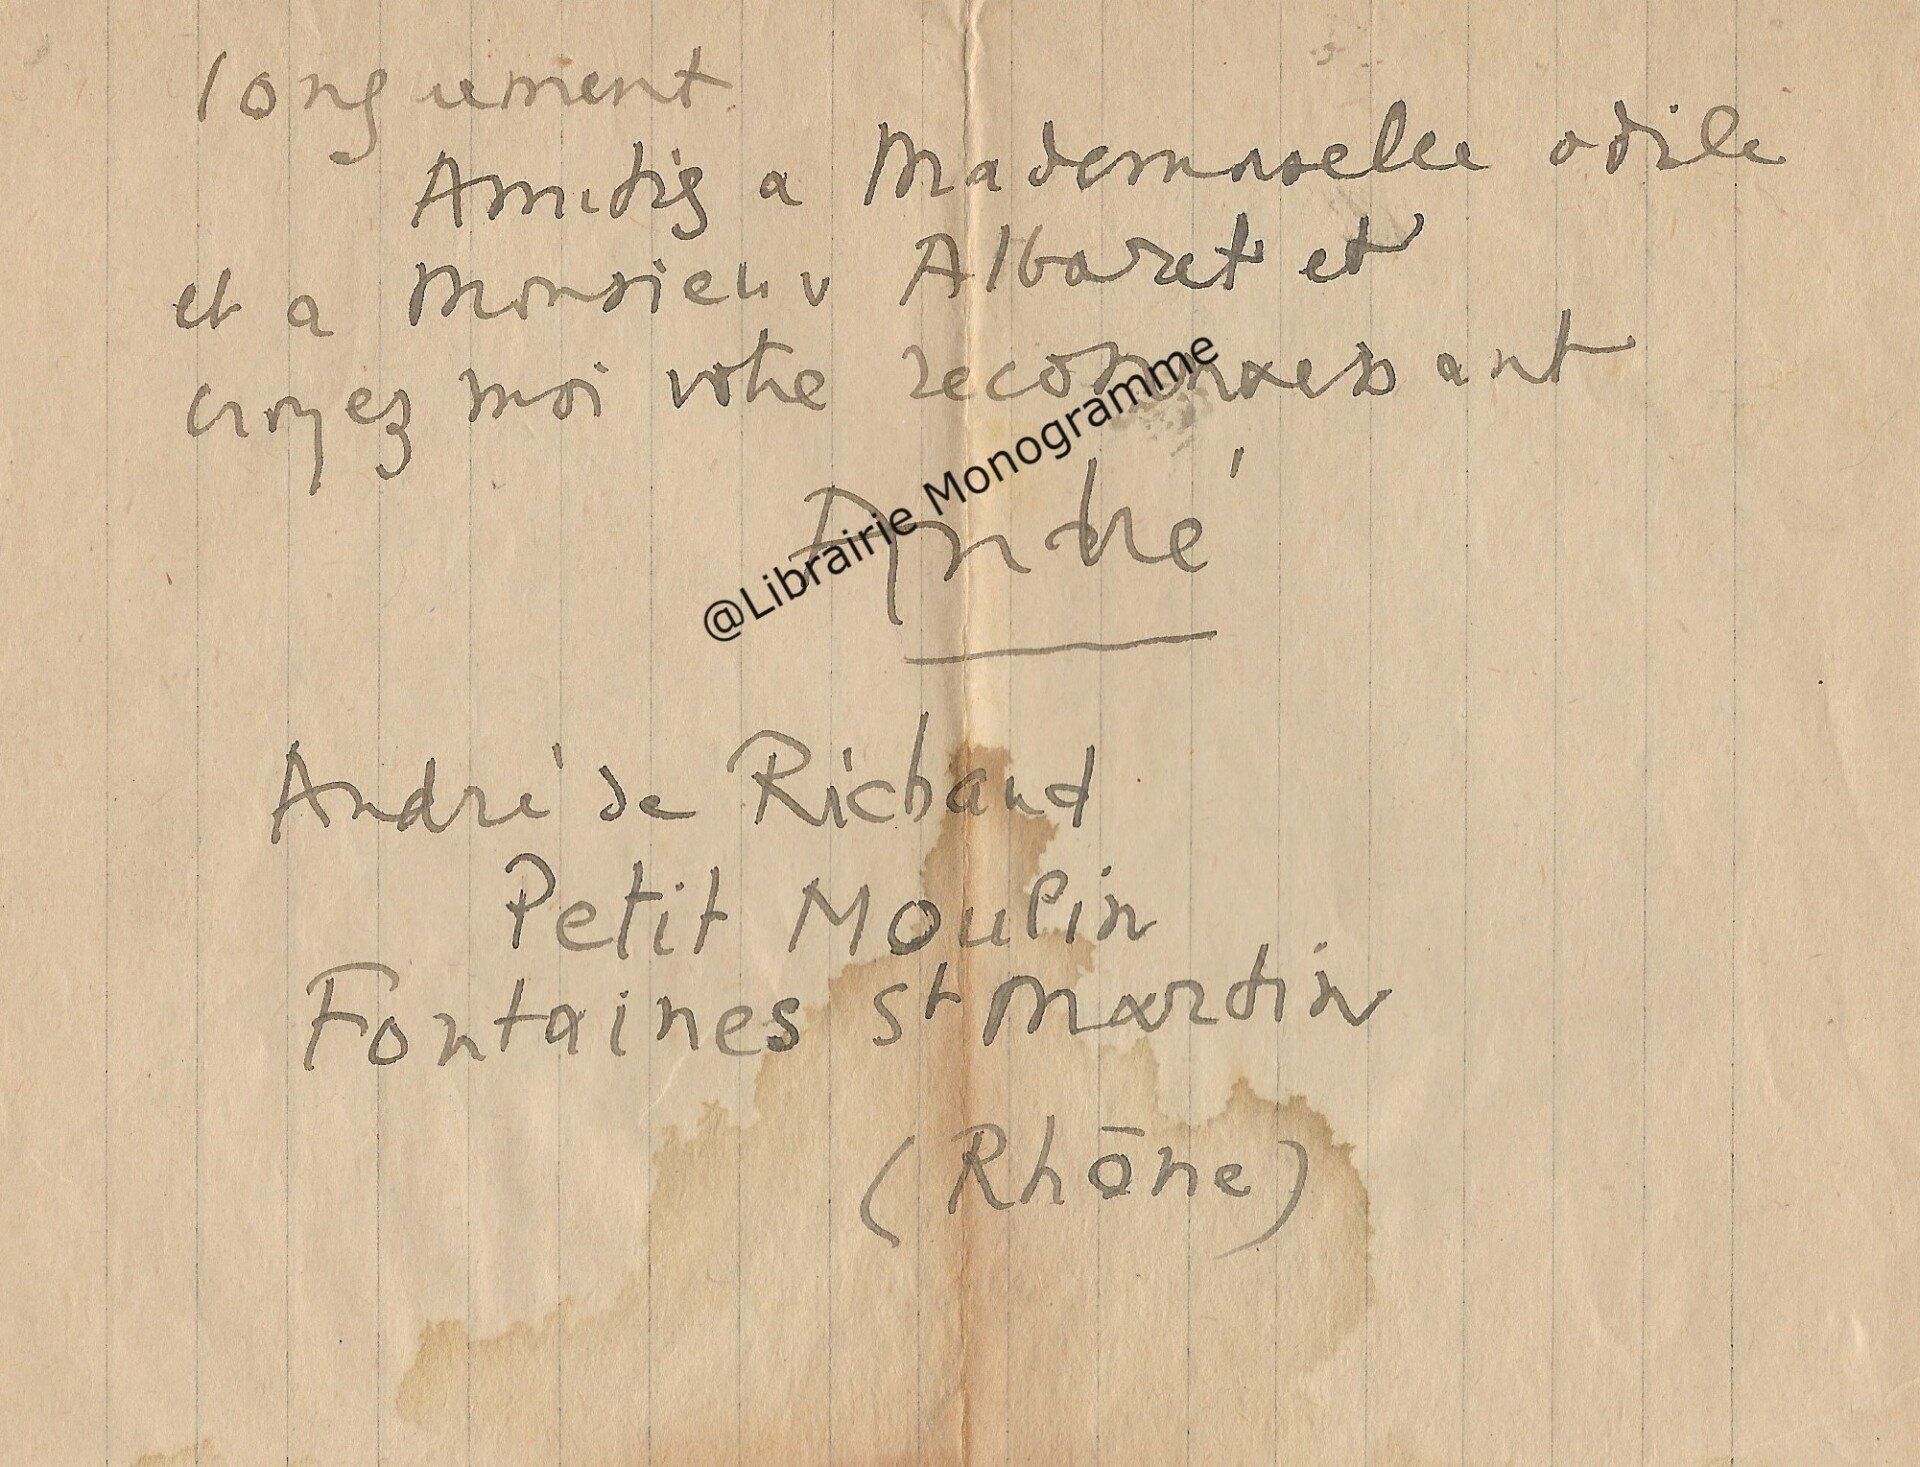 longuement
Amitiés a Mademoiselle odile
et a Monsieur Albaret et
croyez moi votre reconnaissant
@Librairie Monogramme
André
André de Richaud
Petit Moulin
Fontaines St Martin
(Rhône)